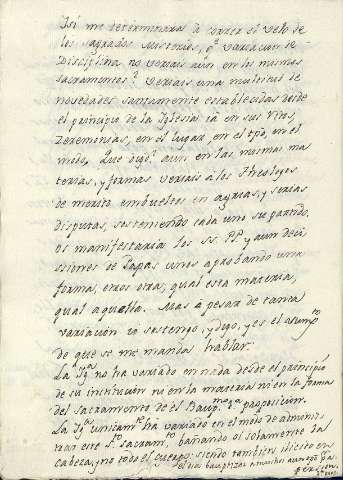 Si me determinara á correr el velo de
los sagrados Misterios, qe variacion de
Disciplina no veriais aun en los mismos
sacramentos? Veriais una multitud de
novedades santamente establecidas desde
el principio de la Iglesia iá en sus ritos,
Zeremonias, en el lugar, en el tpo, en el
modo. Que digo? aun en las mismas ma
terias, y formas veriais á los Theologos
de merito embueltos en agrias, y serias
disputas, sosteniendo cada uno su partido,
os manifestaria los SS. PP. y aun deci
siones de Papas unos aprobando una
forma, otros otra; qual esta materia,
qual aquella. Mas a pesar de tanta
variacion io sostengo, y digo, y es el asunto
de que se me manda hablar.
La Iga no ha variado en nada desde el principio
de su institucion ni en la materia ni en la forma
del sacramento de el Baup. proposicion.
La Iga unicamte ha variado en el modo de adminis
trar este Sto sacramto bañando ó solamente la
cabeza, y no todo el cuerpo: siendo tambien
el dia bauptizar a muchos